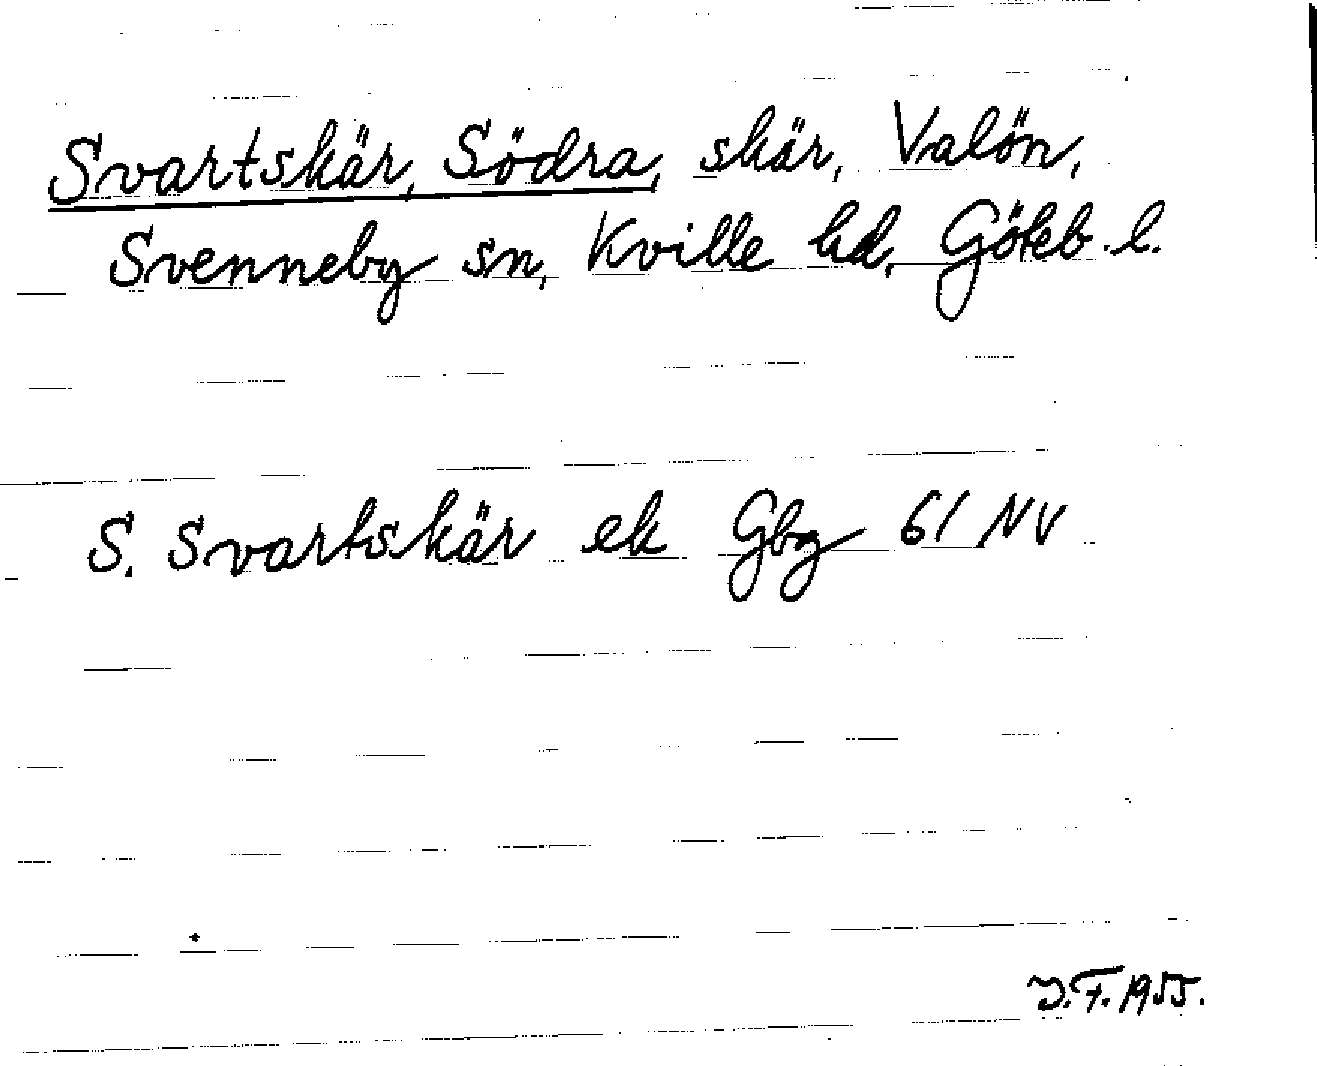 Svartskär, Södra, skär, Valön,
Svenneby sn, Kville hd, Göteb. l.
S. Svartskär ek Gbg 61 NV
J.F. 1955.